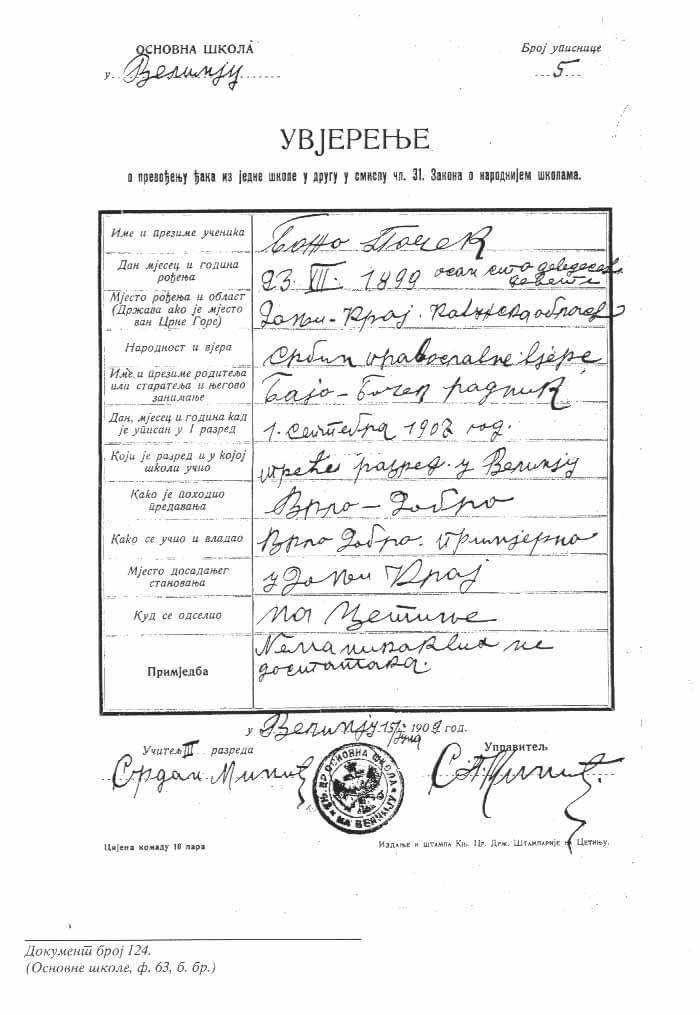 ОСНОВНА ШКОЛА
у Велињу
Број уписнице
5
УВЈЕРЕЊЕ
о превођењу ђака из једне школе у другу у смислу чл. 31. Закона о народнијем школама.
Име и презиме ученика
Божо Почек
Дан мјесец и година рођења
23. VII. 1899 осам сто деведесет девете
Мјесто рођења и област (Држава ако је мјесто ван Црне Горе)
Доњи-Крај.
Народност и вјера
Србин православне вјере
Име и презиме родитеља или старатеља и његово занимање
Бајо – радник
Дан, мјесец и година кад је уписан у I разред
1. септебра 190 год.
Који је разред и у којој школи учио
трећи разред у Велињу
Како је походио предавања
Врло – Добро
Како се учио и владао
Врло Добро. примјерно
Мјесто досадањег становања
у Доњи Крај
Куд се одселио
на Цетиње
Примједба
Нема никаквих не
достатака.
у Велињу 15 190 год.
Учитељ III разреда
Срдан
Управитељ
ОСНОВНА ШКОЛА
Цијена комаду 10 пара
Издање и штампа Књ. Цр. Држ. Штампарије на Цетињу.
Документ број 124.
(Основне школе, ф. 63, б. бр.)